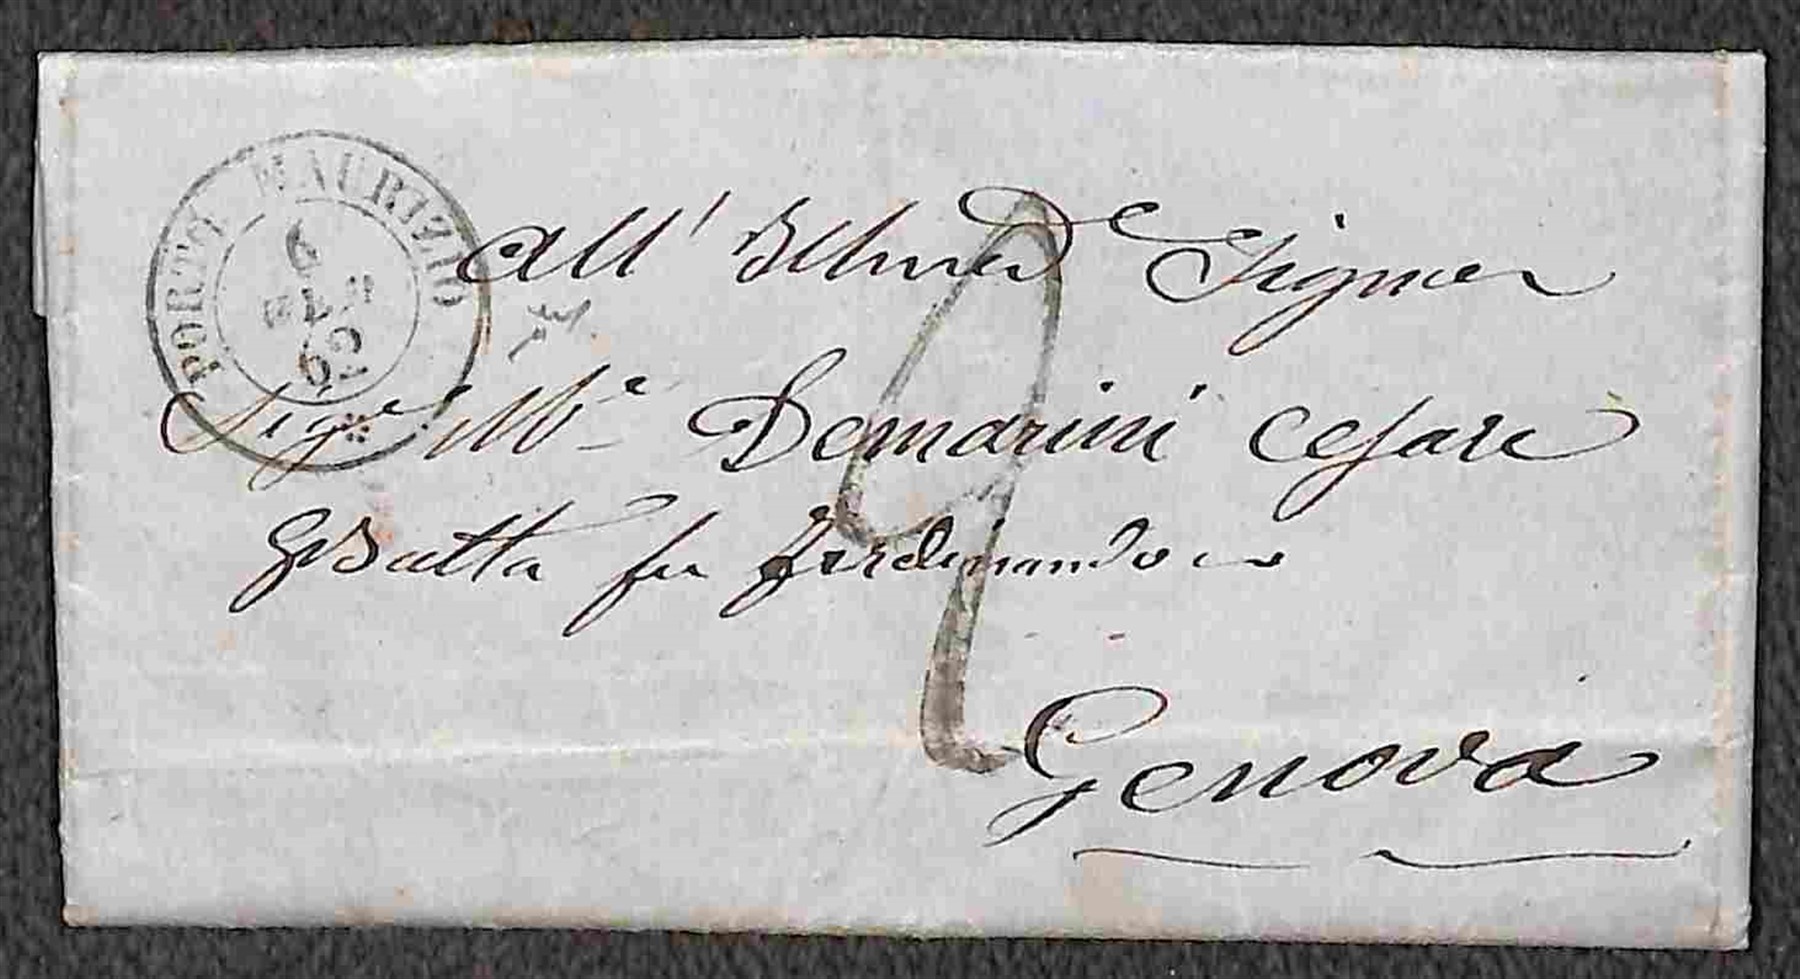 PORTO MAURIZIO
6
62
All' Illmo Signor
Sigr Mse Demarini Cesare
GioBatta fu Ferdinando
Genova